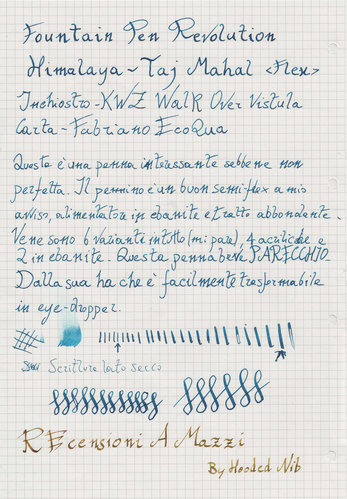 Fountain Pen Revolution
Himalaya ~ Taj Mahal <Flex>
Inchiostro - KWZ Walk Over Vistula
Carta - Fabriano EcoQua
Questa è una penna interessante sebbene non
perfetta. Il pennino è un buon semiflex a mio
avviso, alimentatore in ebanite e tratto abbondante.
Ve ne sono 6 varianti in tutto (mi pare), 4 acriliche e
2 in ebanite. Questa penna beve PARECCHIO
Dalla sua ha che è facilmente trasformabile
in eye-dropper.
Scrittura lato secco
REcensioni A Mazzi
By Hooded Nib